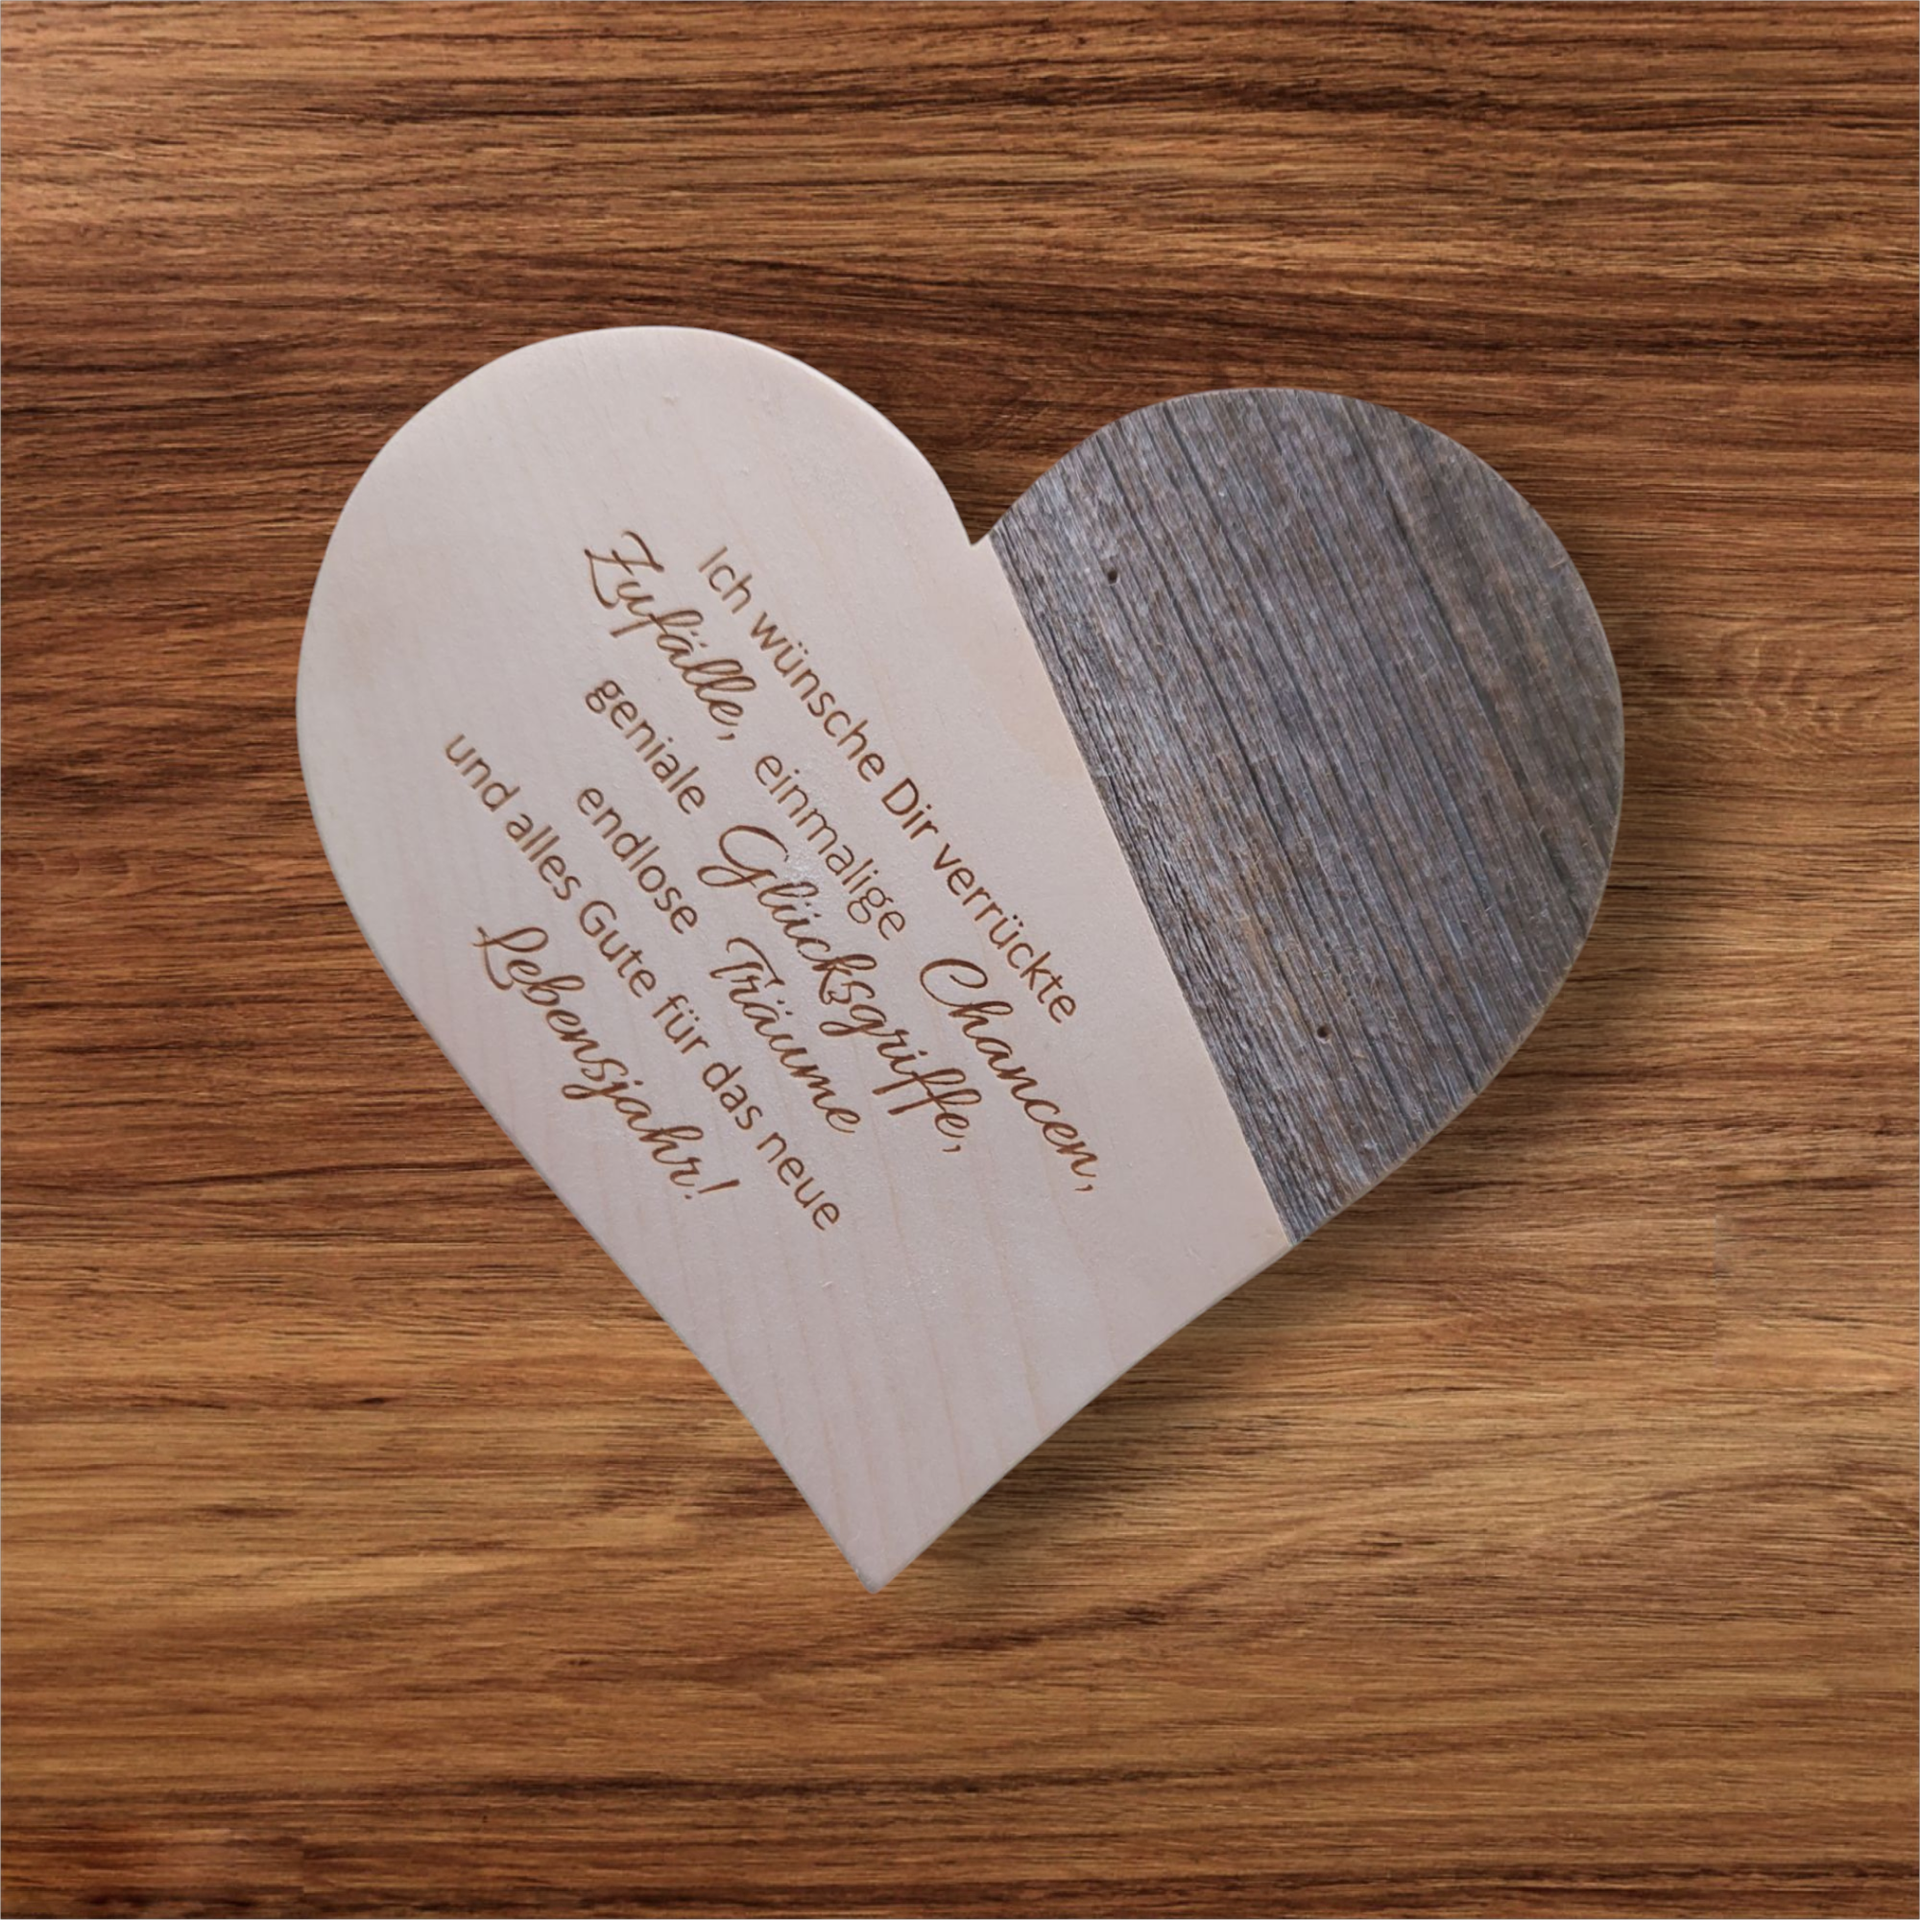 Ich wünsche Dir verrückte
Zufälle, einmalige Chancen,
geniale Glücksgriffe,
endlose Träume
und alles Gute für das neue
Lebensjahr!